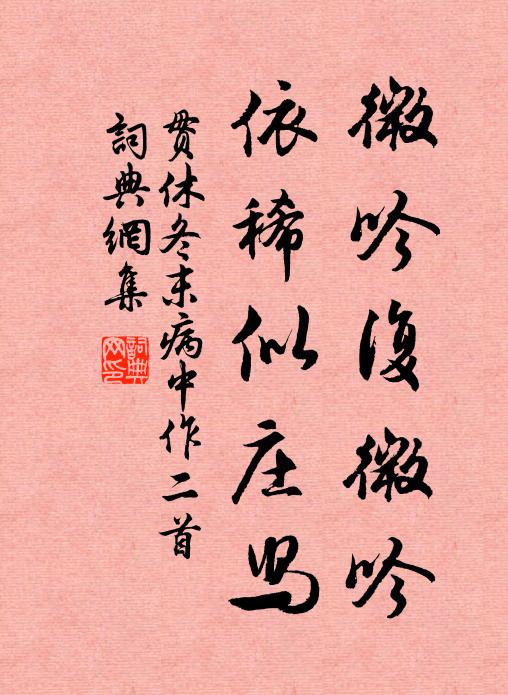 微吟復微吟
依稀似庄舃
貫休冬末病中作二首
詞典網集
詞典網印